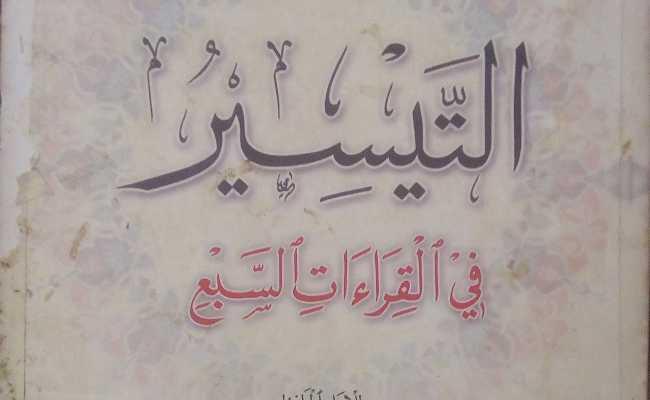 التَّيْسِيرُ
فِي ٱلْقِرَاءَاتِ ٱلسَّبْعِ